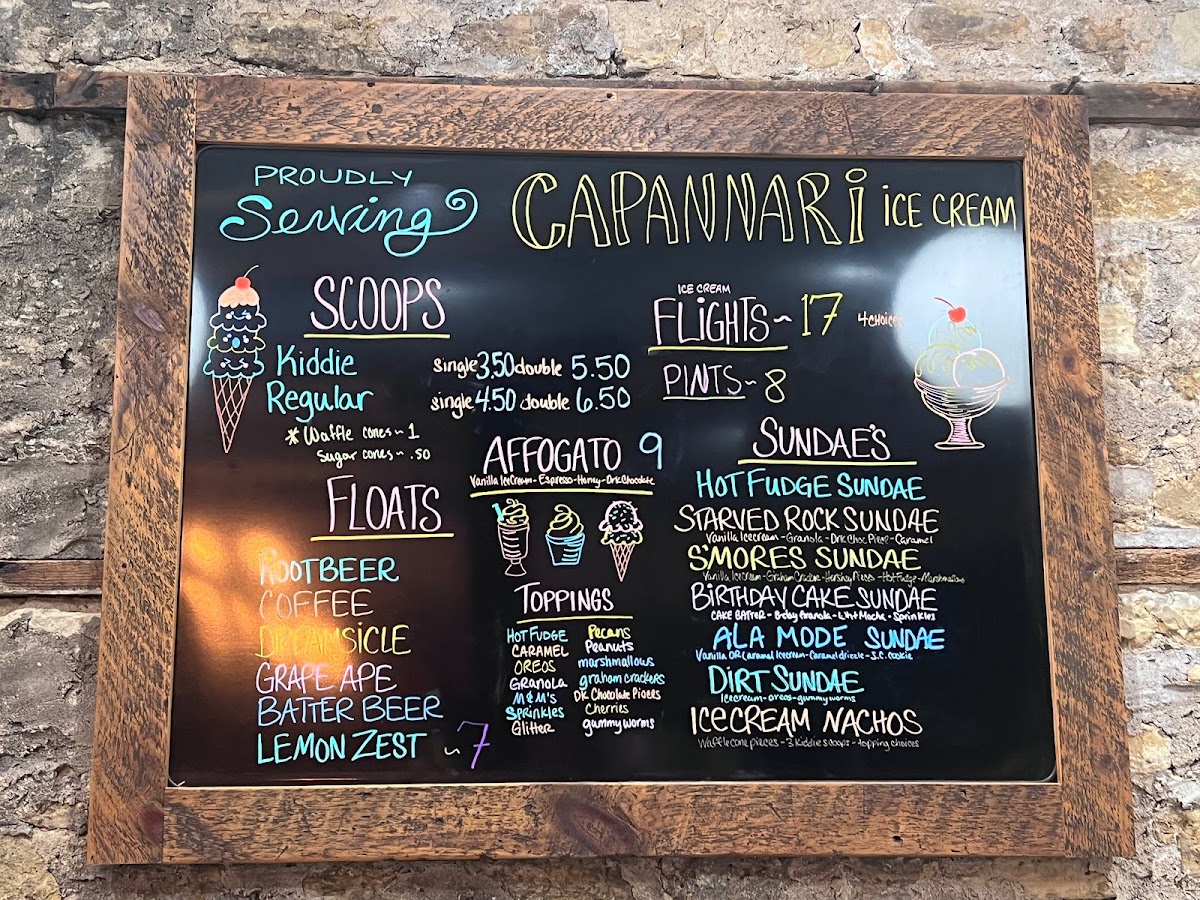 PROUDLY
Serving
CAPANNARI ICE CREAM
SCOOPS
Kiddie single 3.50 double 5.50
Regular single 4.50 double 6.50
* Waffle cones ~ 1
Sugar cones ~ .50
ICE CREAM
FLIGHTS ~ 17 4 CHOICES
PINTS ~ 8
AFFOGATO 9
Vanilla IceCream - Espresso - Honey - Drk Chocolate
FLOATS
ROOTBEER
COFFEE
DREAMSICLE
GRAPE APE
BATTER BEER
LEMON ZEST ~ 7
TOPPINGS
HOT FUDGE
CARAMEL
OREOS
GRANOLA
M&M'S
Sprinkles
Glitter
Pecans
Peanuts
marshmallows
graham crackers
DK Chocolate Pieces
Cherries
gummy worms
SUNDAE'S
HOT FUDGE SUNDAE
STARVED ROCK SUNDAE
Vanilla Icecream - Granola - Drk Choc Piece - Caramel
S'MORES SUNDAE
Vanilla Icecream - Graham Cracker - Hershey Pieces - Hot Fudge - Marshmallow
BIRTHDAY CAKE SUNDAE
CAKE BATTER - Bday Granola - Wht Mocha - Sprinkles
ALA MODE SUNDAE
Vanilla OR Caramel Icecream - Caramel drizzle - S.C. cookie
DIRT SUNDAE
Icecream - oreos - gummy worms
ICECREAM NACHOS
Waffle cone pieces - 3 kiddie scoops - topping choices